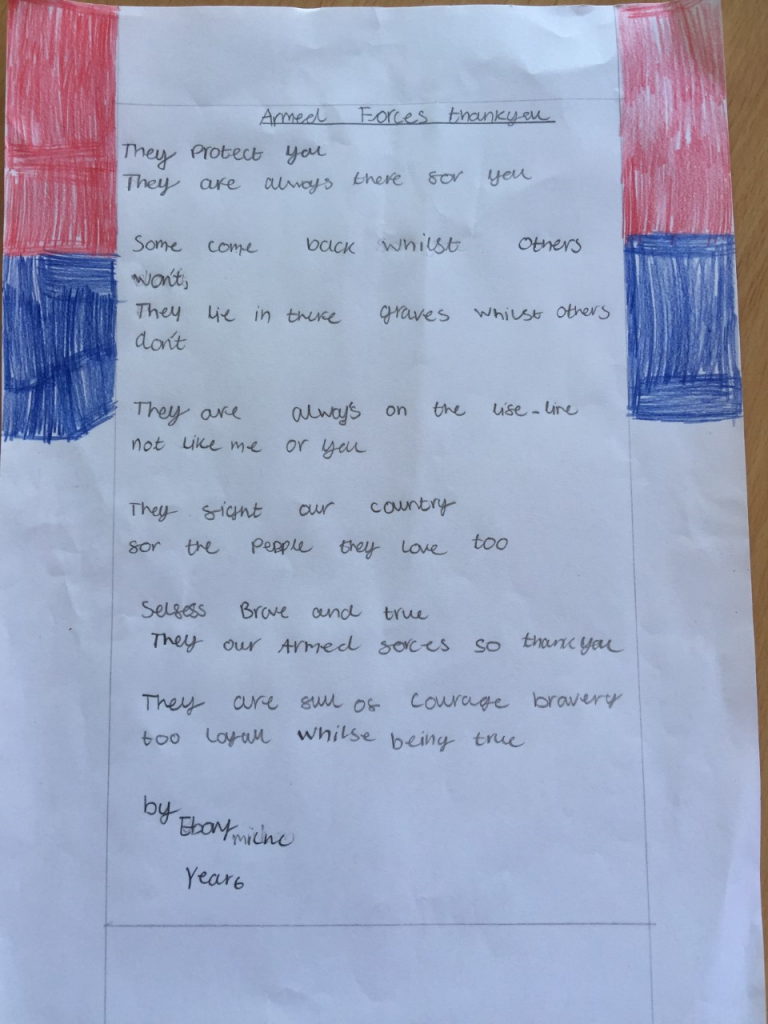 Armed Forces thankyou
They Protect you
They are always there for you
Some come back whilst others
won't,
They lie in there graves whilst others
don't
They are always on the life-line
not like me or you
They fight our country
for the people they love too
Selfess Brave and true
They our Armed forces so thankyou
They are full of courage bravery
too loyall whilse being true
by
Ebony
Year 6